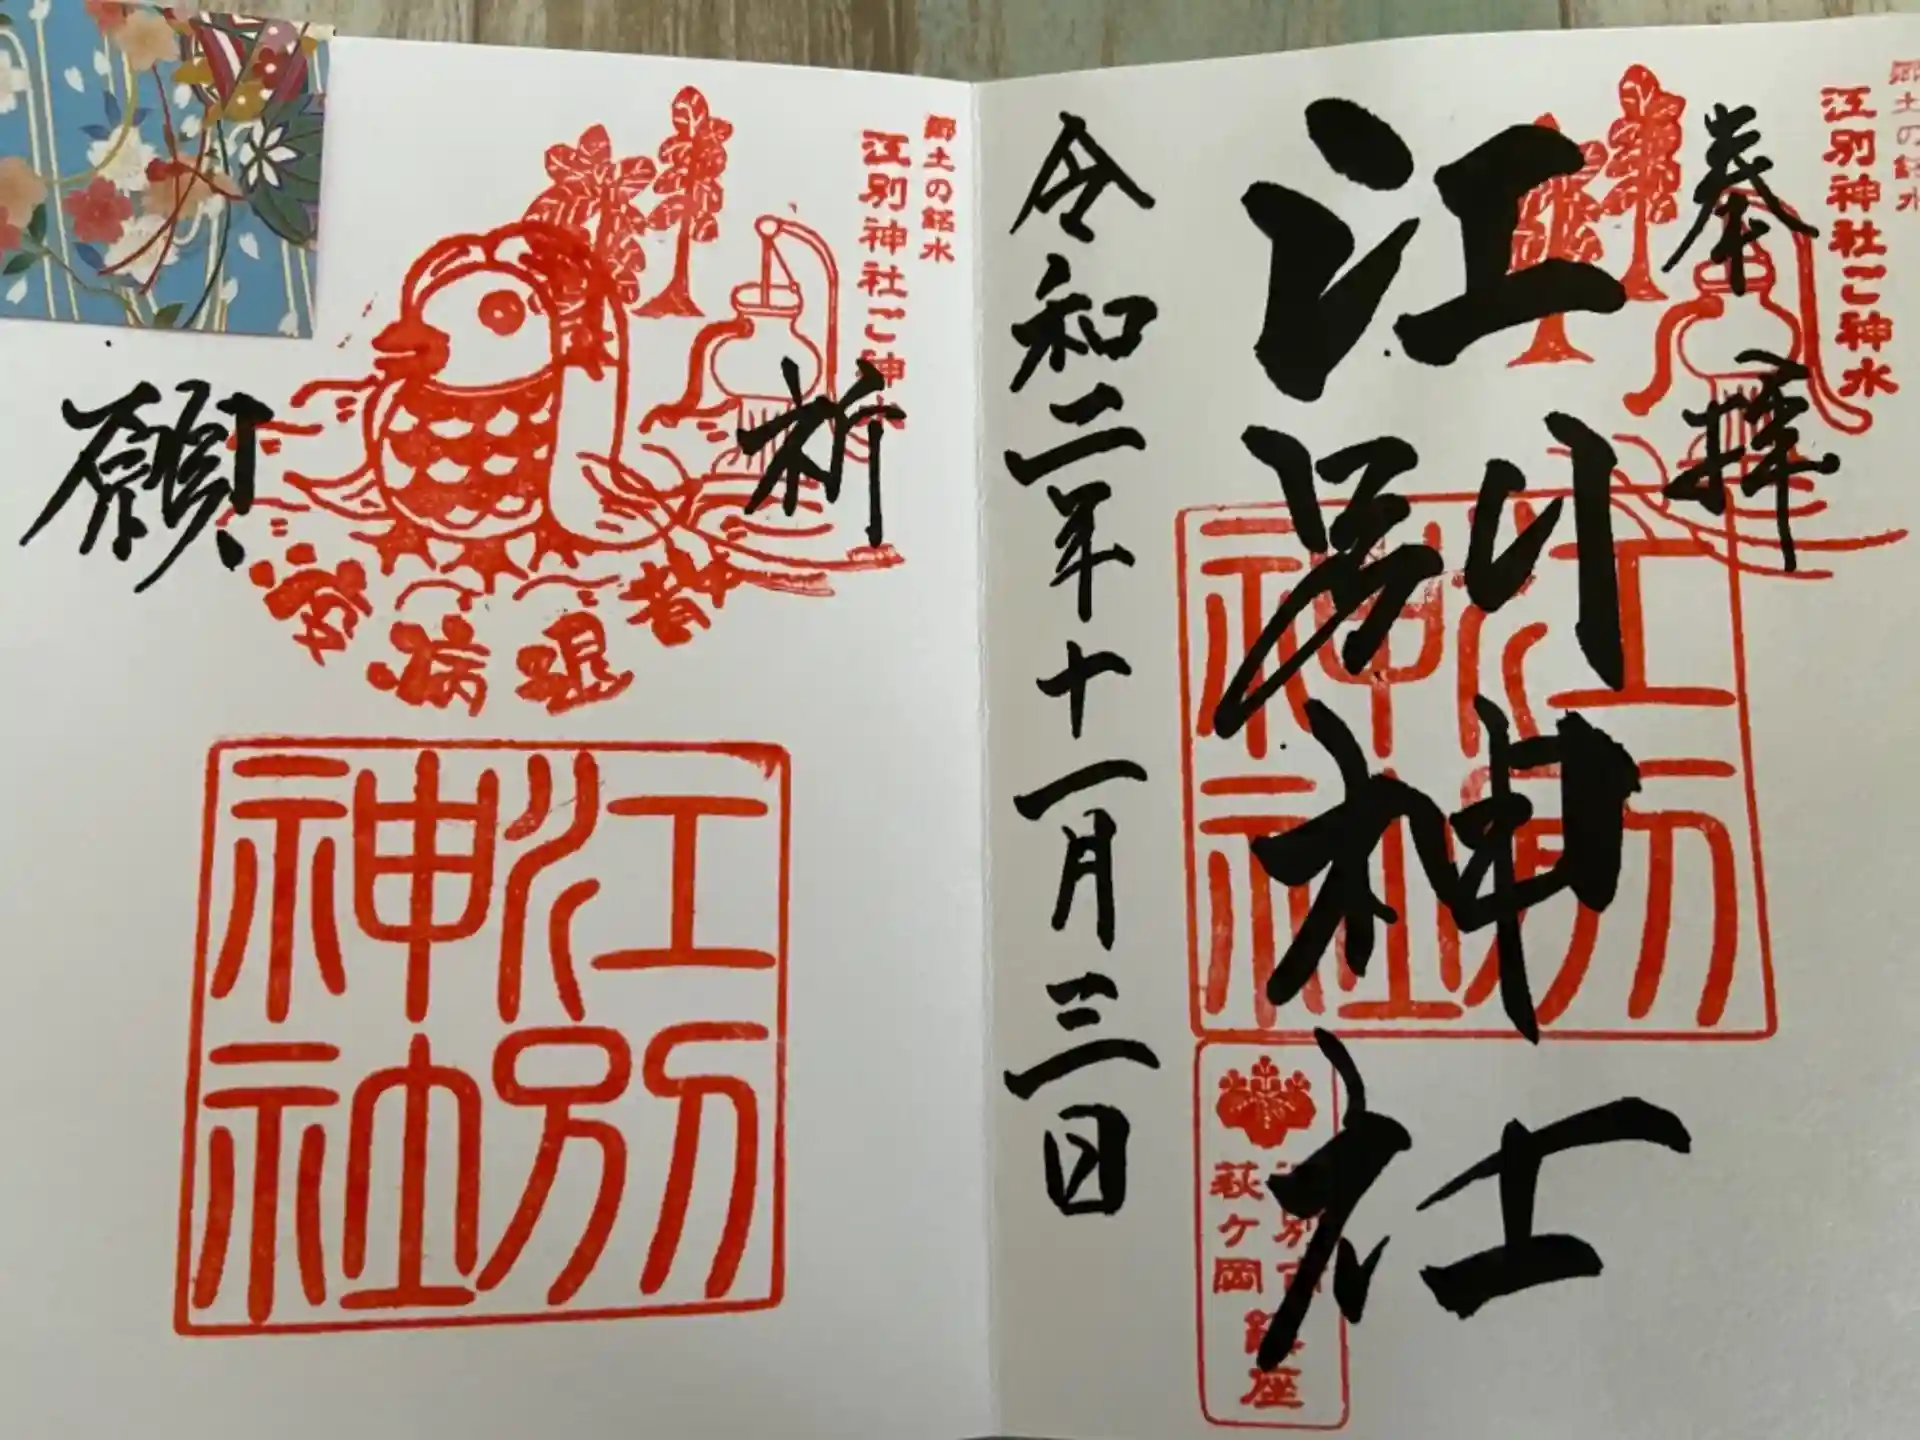 郷土の銘水
江別神社ご神水
奉拝
江別神社
江別神社
江別市
萩ケ岡
鎮座
令和二年十一月三日
郷土の銘水
江別神社ご神水
祈願
疫病退散
江別神社